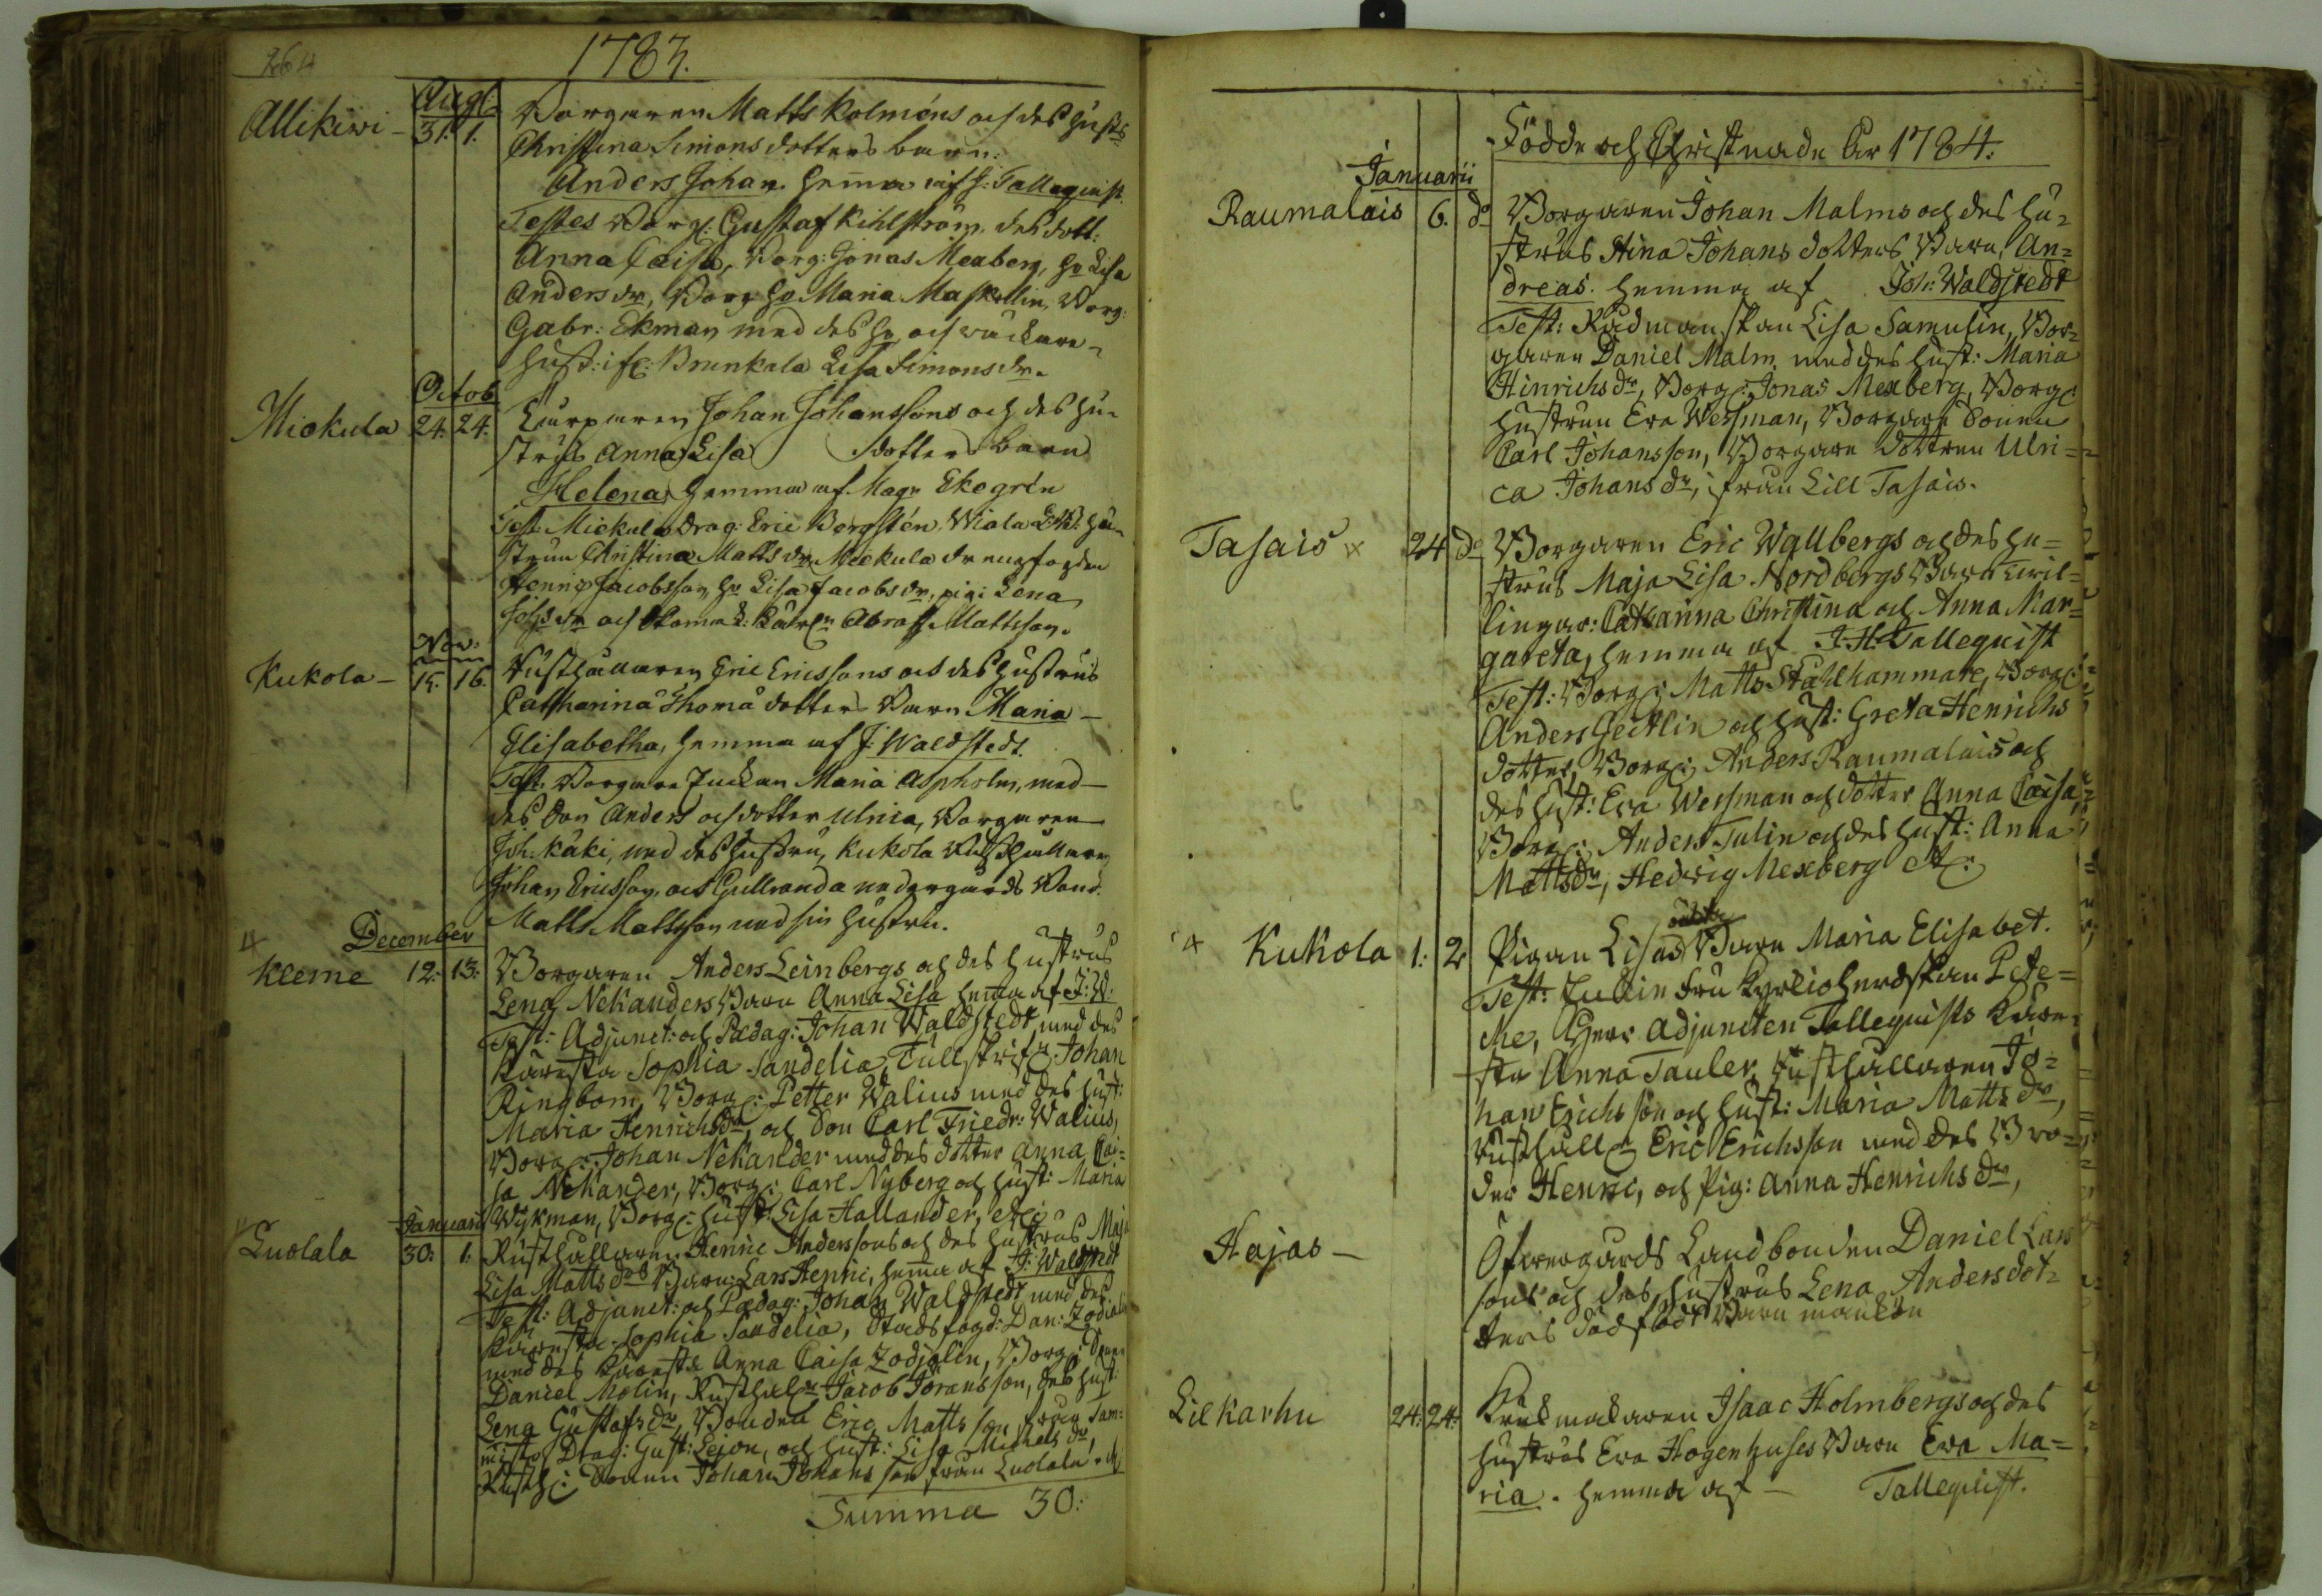 264
1783.
Augl:
Allikiwi - 31. 1. Borgaren Matts Kolmóns och des hust:s
Christina Simons dotters barn.
Anders Johan. hem̄a af J: Tallequist.
Testes Borg: Gustaf Kihlström, des dott:
Anna Caisa, Borg: Jonas Mexberg, hu Lisa
Anders dr, Borg hu Maria Maskollin, Borg:
Gabr: Ekman med des hu och
hust: ifr: Brunkala Lisa Simonsdr.
Octob
Miekula 24. 24. Johan Johanssons och des hu-
strus Anna Lisa dotters barn
Helena hemma af Magn Ekegrén
Test. Miekula Drag: Eric Bergstén, Wiala hu-
strun Christina Matts dr Miekula
Henric Jacobsson, hu Lisa Jacobs dr, pig: Lena
och Abrah: Mattsson.
Nov:
Kukola - 15. 16. Rusthållaren Eric Ericssons och des hustrus
Catharina Thomä dotters Barn Maria
Elisabetha, hemma af J: Waldstedt.
Test. Borgare Enckan Maria Aspholm, med
des Son Anders och dotter Ulrica, Borgaren
Joh: Käki, med des hustru, Kukola Rusthållaren
Johan Ericsson, och Gullranda nedergårds Bond.
Matts Mattsson med sin hustru.
December
Kleme 12. 13. Borgaren Anders Leinbergs och des hustrus
Lena Nekanders Barn Anna Lisa hem̄a af J: W.
Test: Adjunct: och Pædag: Johan Waldstedt, med des
Käresta Sophia Sandelia, Johan
Ringbom, Borg: Petter Walius med des hust:
Maria Henrichs dr, och Son Carl Friedr: Walius,
Borg: Johan Nekander med des dotter Anna Cai-
sa Nekander, Borg: Carl Nyberg och hust: Maria
Wijkman, Borg: hust: Lisa Hallander, etc:
Januarii
Luolala 30. 1. Rusthållaren Henric Anderssons och des hustrus Maja
Lisa Matts drs Barn: Lars Henric, hem̄a af J: Waldstedt
Test: Adjunct: och Pædag: Johan Waldstedt med des
Käresta Sophia Sandelia, Stadsfogd: Dan: Zodiolin
med des Käresta Anna Caisa Zodjolin, Borg: Sonen
Daniel Molin, Rusthålr Jacob Jöransson, des hust:
Lena Gustafs dr, Bonden Eric Mattsson från Tam-
misto Drag: Gust: Lejon, och hust: Lisa Michels dr,
Rusth: Sonen Johan Johansson från Luolala. etc
Summa 30:
Födde och Christnade År 1784.
Januarii
Raumalais 6. do Borgaren Johan Malms och des hu-
strus Stina Johans dotters Barn, An-
dreas. hemma af Joh: Waldstedt
Test: Rådmanskan Lisa Samulin, Bor-
garen Daniel Malm med des hust: Maria
Hinrichs dr, Borg: Jonas Mexberg, Borg:
hustrun Eva Wessman, Borgare Sonen
Carl Johansson, Borgare dottren Ulri-
ca Johans dr, ifrån Lill Tasais.
Tasais x 24 do Borgaren Eric Wallbergs och des hu-
strus Maja Lisa Nordbergs Barn twil-
lingar: Catharina Christina och Anna Mar-
gareta, hemma af J. H. Tallequist
Test: Borg: Matts Stålhammare, Borg:
Anders Geitlin och hust: Greta Henrichs
dotter, Borg: Anders Raumalais och
des hust: Eva Wessman och dotter Anna Caisa,
Borg: Anders Tulin och des hust: Anna
Matts dr, Hedvig Mexberg etc:
Kukola 1. 2 Pigan Lisas oäkta Barn Maria Elisabet.
Test: Fru Kyrkioherdskan Pete-
che, Herr Adjuncten Tallequists Käre-
sta Anna Tauler, Rusthållaren Jo-
han Erichsson och hust: Maria Matts dr,
Rusthåll: Eric Erichsson med des Bro-
der Henric, och Pig: Anna Henrichs dr,
Hajas - Öfwergårds Landbonden Daniel Lars
sons och des hustrus Lena Andersdot-
ters dödfödt Barn mankön
Lilkarhu 24. 24. Krukmakaren Isaac Holmbergs och des
hustrus Eva Hogenhuses Barn Eva Ma-
ria. hemma af - Tallequist.